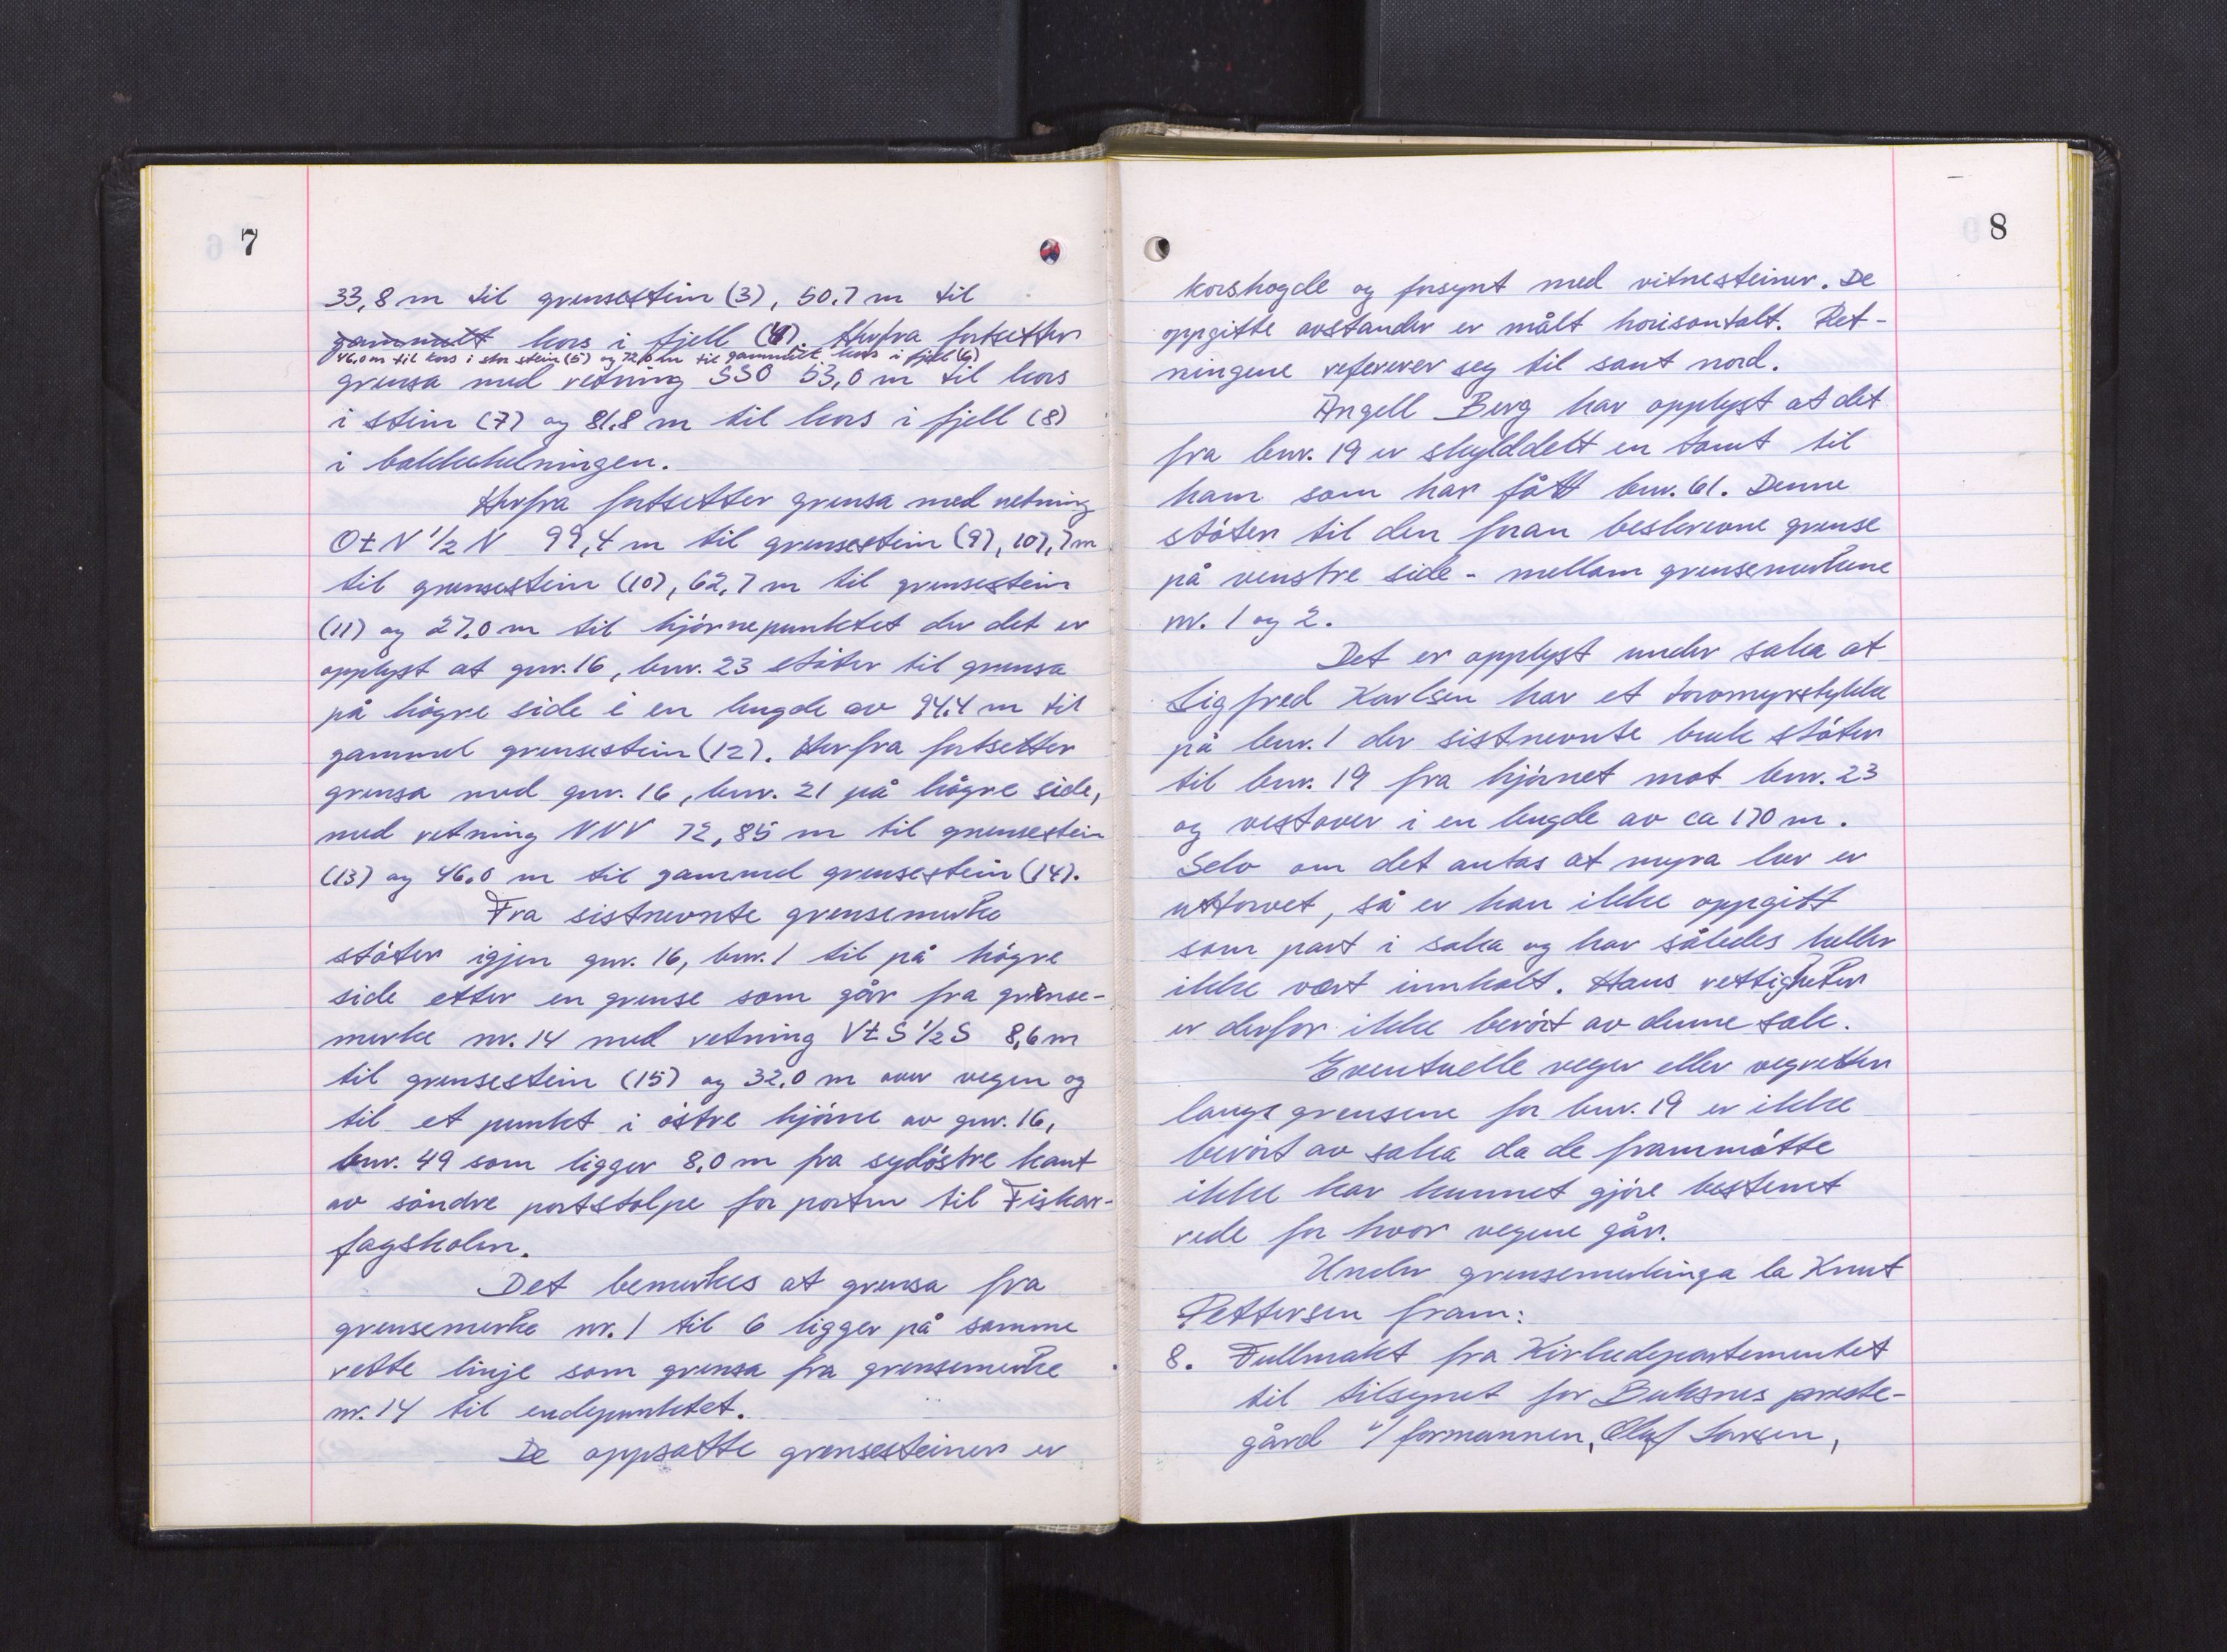 7
33,8 m til grensestein (3), 50,7 m til
gammelt kors i fjell (4). Herfra fortsetter
46,0 m til kors i stor stein (5) og 72,0 m til gammelt kors i fjell (6)
grensa med retning SSO 53,0 m til kors
i stein (7) og 81,8 m til kors i fjell (8)
i bakkehelningen.
Herfra fortsetter grensa med retning
OtN 1/2 N 99,4 m til grensestein (9), 107,7 m
til grensestein (10), 62,7 m til grensestein
(11) og 27,0 m til hjörnepunktet der det er
opplyst at gnr. 16, bnr. 23 stöter til grensa
på högre side i en lengde av 94,4 m til
gammel grensestein (12). Herfra fortsetter
grensa med gnr. 16, bnr. 21 på högre side,
med retning NNV 72,85 m til grensestein
(13) og 46,0 m til gammel grensestein (14).
Fra sistnevnte grensemerke
stöter igjen gnr. 16, bnr. 1 til på högre
side etter en grense som går fra grense-
merke nr. 14 med retning VtS 1/2 S 8,6 m
til grensestein (15) og 32,0 m over vegen og
til et punkt i östre hjörne av gnr. 16,
bnr. 49 som ligger 8,0 m fra sydöstre kant
av söndre portstolpe for porten til Fiskar-
fagskolen.
Det bemerkes at grensa fra
grensemerke nr. 1 til 6 ligger på samme
rette linje som grensa fra grensemerke
nr. 14 til endepunktet.
De oppsatte grensesteiner er
8
korshogde og forsynt med vitnesteiner. De
oppgitte avstander er målt horisontalt. Ret-
ningene refererer seg til sant nord.
Angell Berg har opplyst at det
fra bnr. 19 er skylddelt en tomt til
ham som har fått bnr. 61. Denne
stöter til den foran beskrevne grense
på venstre side - mellom grensemerkene
nr. 1 og 2.
Det er opplyst under saka at
Sigfred Karlsen har et torvmyrstykke
på bnr. 1 der sistnevnte bruk stöter
til bnr. 19 fra hjörnet mot bnr. 23
og vestover i en lengde av ca 170 m.
Selv om det antas at myra her er
uttorvet, så er han ikke oppgitt
som part i saka og har således heller
ikke vært innkalt. Hans rettigheter
er derfor ikke berört av denne sak.
Eventuelle veger eller vegretter
langs grensene for bnr. 19 er ikke
berört av saka da de frammötte
ikke har kunnet gjöre bestemt
rede for hvor vegene går.
Under grensemerkinga la Knut
Pettersen fram:
8. Fullmakt fra Kirkedepartementet
til tilsynet for Buksnes preste-
gård v/ formannen, Olaf Larsen,